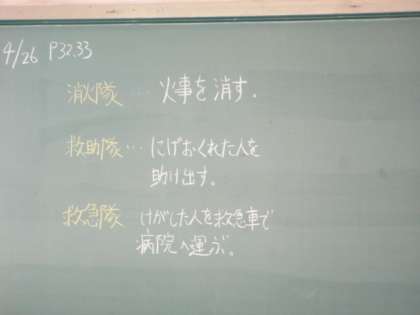 4/26 P32.33
消火隊 … 火事を消す.
救助隊 … にげおくれた人を
助け出す。
救急隊 けがした人を救急車で
病院へ運ぶ。